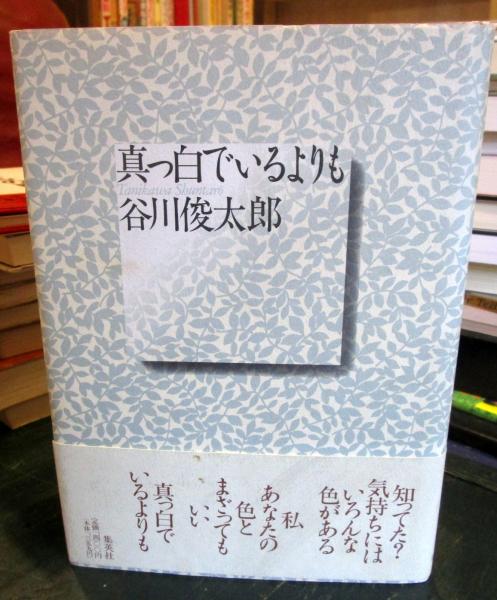 真っ白でいるよりも
Tanikawa Shuntarō
谷川俊太郎
知ってた?
気持ちには
いろんな
色がある
私
あなたの
色と
まざっても
いい
真っ白で
いるよりも
集英社